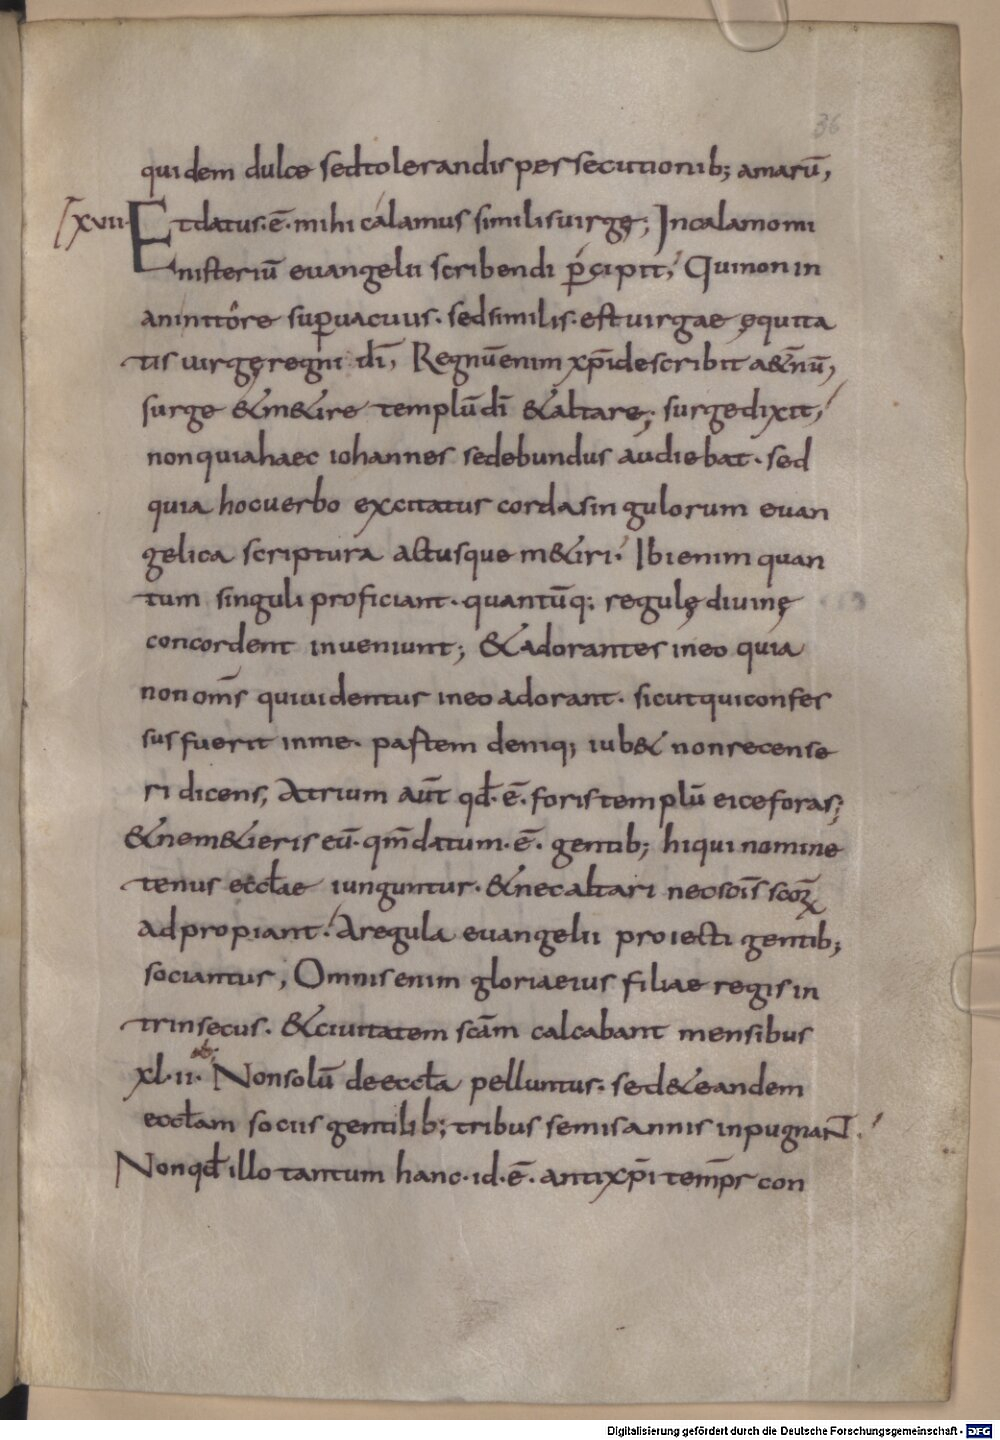 36
quidem dulce sed tolerandis persecutionib; amarū,
xvii. Et datus. ē. mihi calamus similis uirgę; In calamo mi
nisteriū euangelii scribendi p̄cipit; Qui non in
ani nitore sup̱uacuus. sed similis. est uirgae ęquita
tis uirgę regni dī, Regnū enim xp̄i describit aet̄nū,
surge & m&ire templū dī & altare; surge dixit,
non quia haec iohannes sedebundus audiebat. sed
quia hoc uerbo excitatus corda singulorum euan
gelica scriptura actusque m&iri. Ibi enim quan
tum singuli proficiant. quantūq; regulę diuinę
concordent inueniunt; & adorantes in eo quia
non om̄s qui uidentur in eo adorant. sicut qui confes
sus fuerit in me. partem deniq; iub& non recense
ri dicens, Atrium aūt qđ. ē. foris templū eice foras;
& ne m&ieris eū. qm̄ datum. ē. gentib; hi qui nomine
tenus eccłae iunguntur. & nec altari nec sc̄is scoꝝ
adpropiant. A regula euangelii proiecti gentib;
sociantur, Omnis enim gloria eius filiae regis in
trinsecus. & ciuitatem sc̄am calcabant mensibus
xl. ii. Non solū de eccła pelluntur. sed & eandem
eccłam sociis gentilib; tribus semis annis inpugnaNT.
Non qđ illo tantum hanc. id. ē. antixp̄i temp̄r con
Digitalisierung gefördert durch die Deutsche Forschungsgemeinschaft - DFG